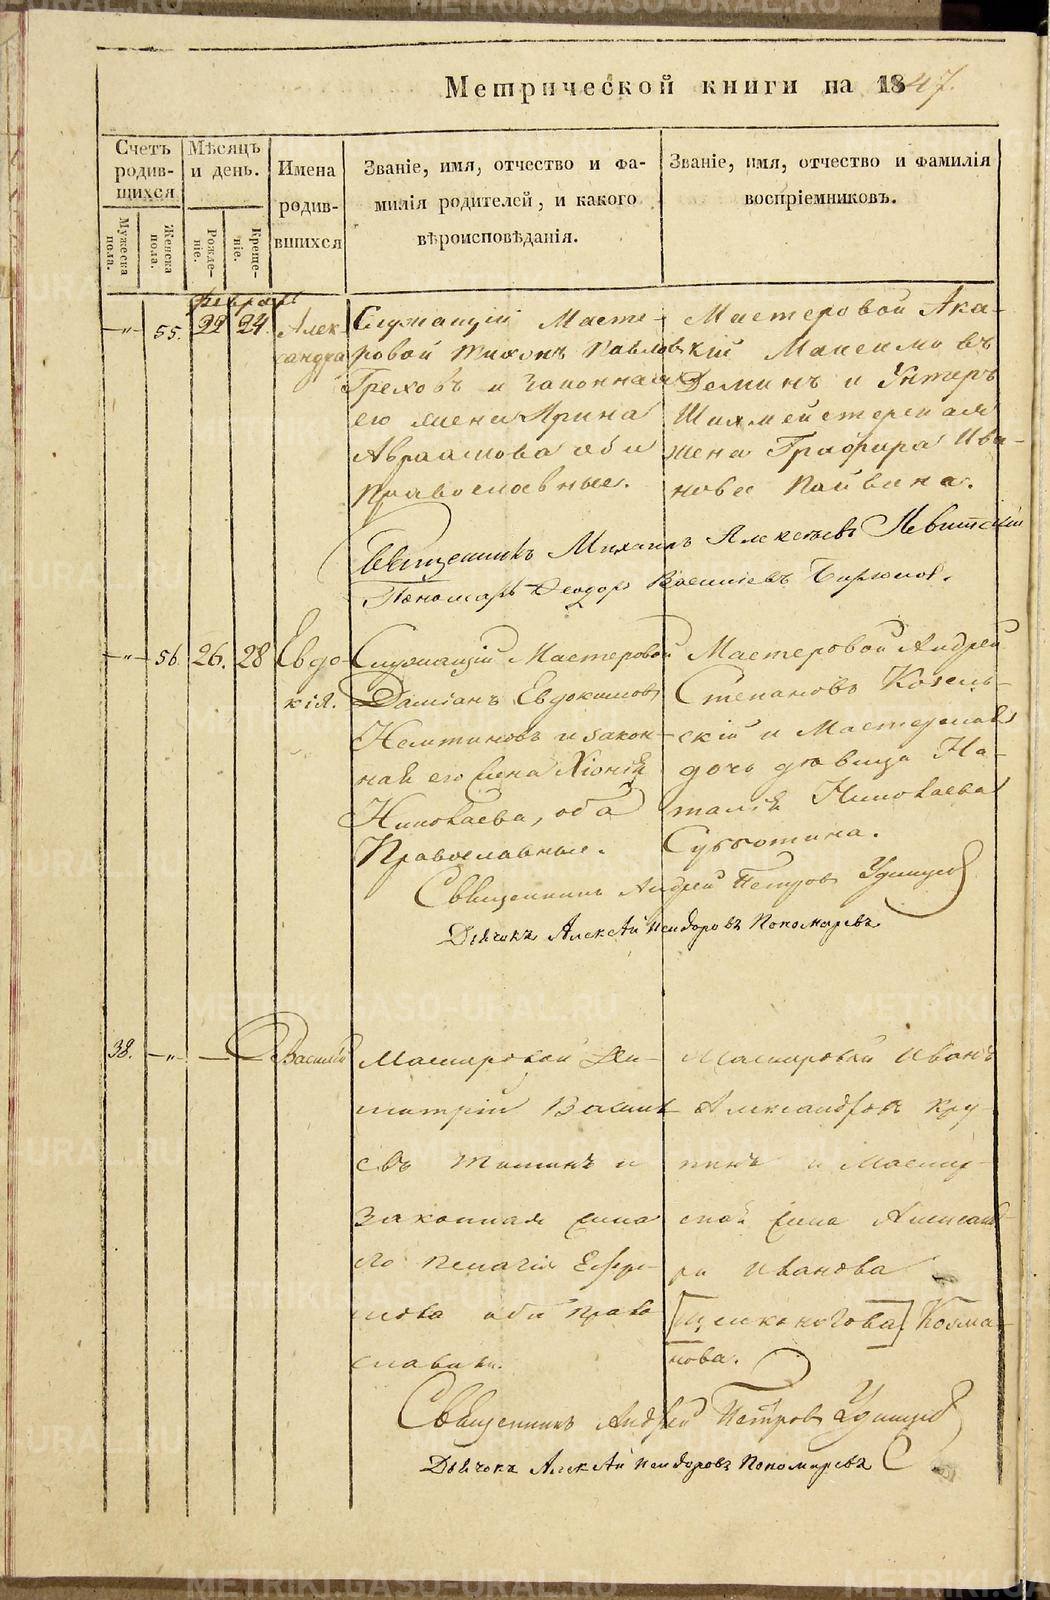 Метрической книги на 1847.
Счетъ родив- шихся
Мѣсяцъ и день.
Имена родив- вшихся
Званіе, имя, отчество и фа-
милія родителей, и какого
вѣроисповѣданія.
Званіе, имя, отчество и фамилія
воспріемниковъ.
Мужеска пола.
Женска пола.
Рожде- ніе.
Креще- ніе.
Февраль
—„— 55. 22 24. Алек- сандра
Служащій Масте-
ровой Тихонъ Павловъ
Греховъ и законная
его жена Ирина
Авраамова оба
Православные.
Мастеровой Ака-
кій Максимовъ
Деминъ и Унтеръ
Шихмейстерская
жена Глафира Ива-
нова Пайвина.
Священникъ Михаилъ Алексѣевъ Левитскій
Пономарь Ѳеодоръ Василіевъ Бирюковъ.
—„— 56 26. 28 Евдо- кія.
Служащій Мастеровой
Даміанъ Евдокимовъ
и закон-
ная его жена Хіонія
Николаева, оба
Православные.
Мастеровой Андрей
Степановъ Козель-
скій и Мастерская
дочь дѣвица На-
талія Николаева
Субботина.
Священникъ Андрей Петровъ Удинцевъ
Дьячокъ Алексѣй Исидоровъ Пономаревъ
38. —„— — Василій
Мастеровой Ди-
митрій Василь-
евъ Тишинъ и
законная жена
его Пелагія Ефре-
мова оба Право
славные.
Мастеровой Иванъ
Александровъ Кру-
пинъ и Мастер-
ская жена Александ-
ра Иванова
[Щелконогова] Колма-
нова.
Священникъ Андрей Петровъ Удинцевъ
Дьячокъ Алексѣй Исидоровъ Пономаревъ
METRIKI.GASO-URAL.RU